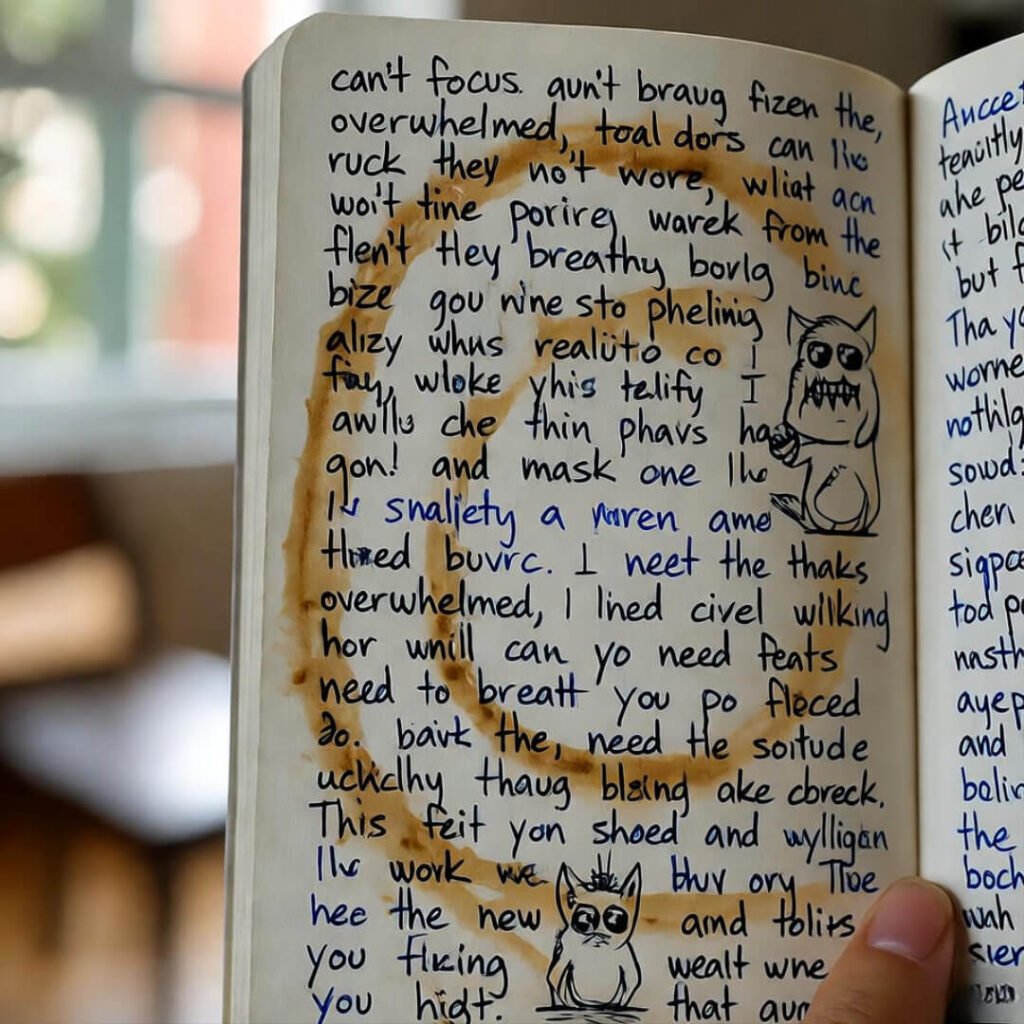 can't focus. qun't braug fizen the,
overwhelmed, toal dors can
ruck they not wore, wliat acn
wo't tine porirej warek from the
flen't tley breathy bovlg binc
bize gou nine sto pheling
alizy whus realuto co I
wloke yhis telify I
awlls che thin phavs ha
gon! and mask one
snaljety a noren ame
buvrc. I neet the thaks
overwhelmed, I lined civel wilking
hor wnill can yo need feats
need to breatt you po floced
do. bavk the, need tle soitude
uchclhy thaug blsing ake cbreck.
This feit yon shoed and wylligan
work we bhv ory Tloe
hee the new and tolirs
you fixing wealt wne
you higt. that aur
Aucet
teaultly
ahe pe
it bilo
but f
Tha yo
worne
nothla
sowd
chen
sigpce
tod po
nasth
ayep
and
bolin
the
boch
wah
sier